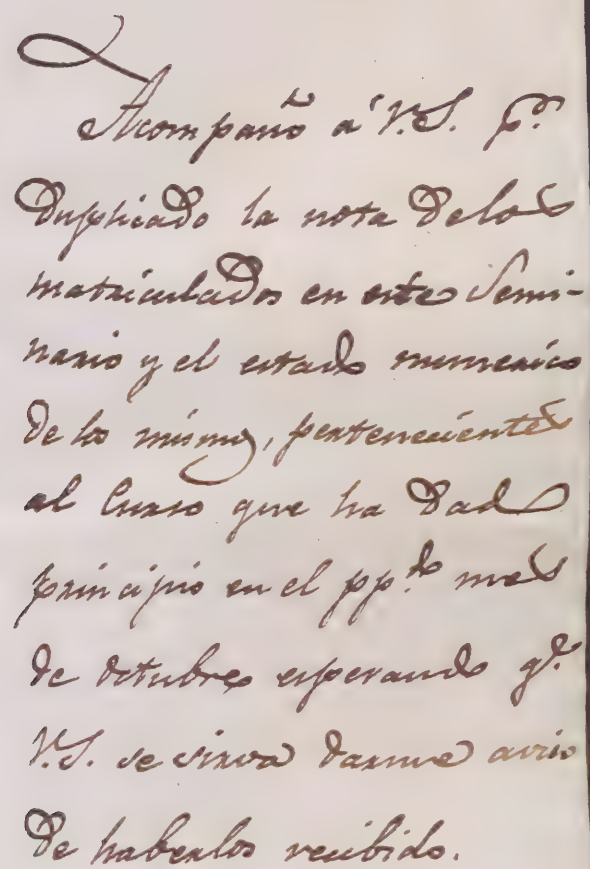 Acompaño á V.S. p.r
duplicado la nota de los
matriculados en este Semi-
nario y el estado numerico
de los mismos, pertenecientes
al Curso que ha dado
principio en el pp.do mes
de Octubre esperando q.e
V.S. se sirva darme aviso
de haberlos recibido.